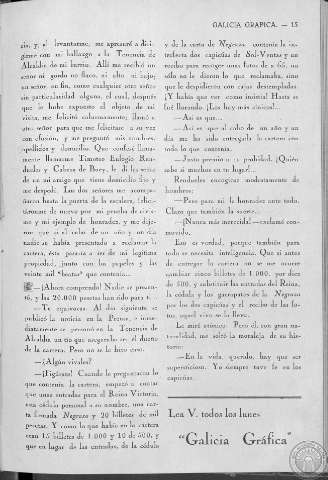 GALICIA GRAFICA. — 15
cio, y, al levantarme, me apresuré a diri-
girme con mi hallazgo a la Tenencia de
Alcaldía de mi barrio. Allí me recibió un
señor ni gordo ni flaco, ni alto ni bajo;
un señor en fin, como cualquier otro señor
sin particularidad alguna, el cual, después
que le hube expuesto el objeto de mi
visita, me felicitó calurosamente; llamó a
otro señor para que me felicitase a su vez
con efusión, y me preguntó mis nombres,
apellidos y domicilio. Que
llamarme Timoteo Eulogio
y Cabeza de Buey, le di las señas
de un mi amigo que tiene domicilio fijo y
me despedí. Los dos señores me acompa-
ñaron hasta la puerta de la escalera,
de nuevo por mi prueba de civis-
mo y mi ejemplo de honradez, y me dije-
ron que si al cabo de un año y un día
nadie se había presentado a reclamar la
cartera, ésta pasaría a ser de mi legítima
propiedad, junto con los papeles y las
veinte mil "beatas" que contenía...
—¡Ahora comprendo! Nadie se presen-
tó, y las 20.000 pesetas han sido para ti...
—Te equivocas. Al día siguiente se
publicó la noticia en la Prensa, e inme-
diatamente se personó en la Tenencia de
Alcaldía un tío que aseguraba ser el dueño
de la cartera. Pero no se la hizo caso.
—¿Algún vivales?
—¡Figúrate! Cuando le preguntaron lo
que contenía la cartera, empezó a contar
que unas entradas para el Reina Victoria,
una cédula personal a su nombre, una car-
ta firmada Negrazo y 20 billetes de mil
pesetas. Y como lo que había en la cartera
eran 15 billetes de 1.000 y 10 de 500, y
que en lugar de las entradas, de la cédula
y de la carta de Negrazo, contenía la ca-
rterita dos capicúas de Sol-Ventas y un
recibo para recoger unas fotos de a 65, no
sólo no le dieron lo que reclamaba, sino
que le despidieron con cajas destempladas.
¡Y había que ver cómo insistía! Hasta se
fué llorando. ¡Los hay más cínicos!...
—Así es que...
—Así es que al cabo de un año y un
día me ha sido entregada la cartera con
todo lo que contenía.
—Justo premio a tu probidad. ¡Quién
sabe si muchos en tu lugar!...
encogióse modestamente de
hombros:
—Pues para mí la honradez ante todo.
Claro que también la suerte...
—¡Nunca más merecida!—exclamé con-
movido.
Eso es verdad, porque también para
todo se necesita inteligencia. Que si antes
de entregar la cartera no se me ocurre
cambiar cinco billetes de 1.000, por diez
de 500, y substituir las entradas del Reina,
la cédula y los garrapatos de la Negraza
por los dos capicúas y el recibo de las fo-
tos, aquel vivo se la lleva.
Le miré atónito. Pero él, con gran na-
turalidad, me soltó la moraleja de su his-
toria:
—En la vida, querido, hay que ser
supersticioso. Yo siempre tuve fe en los
capicúas.
Lea V. todos los lunes
"Galicia Gráfica"